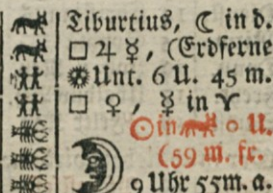 Tiburtius, ☾ in d.
□ ♃ ☿, (Erdferne
Unt. 6 U. 45 m.
□ ♀, ☿ in ♈
☉ in ♉ 0 U.
(59 m. fr.
9 Uhr 55 m. a.